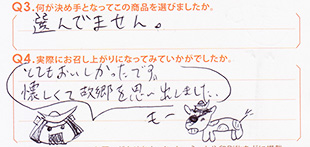 Q3.何が決め手となってこの商品を選びましたか。
選んでません。
Q4.実際にお召し上がりになってみていかがでしたか。
とてもおいしかったです。
懐しくて故郷を思い出しました…
モー